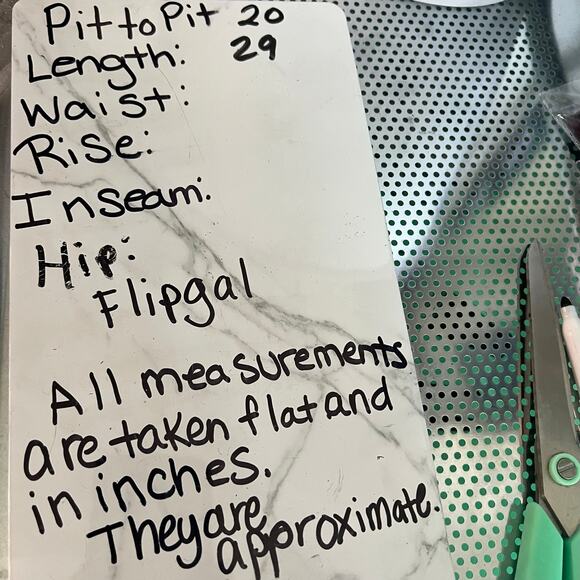 Pit to Pit 20
Length: 29
Waist:
Rise:
Inseam:
Hip:
Flipgal
All measurements
are taken flat and
in inches.
They are
approximate.